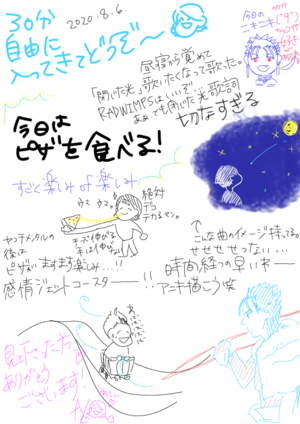 2020.8.6.
30分
自由に
入ってきてどうぞ〜
今日の
ニキニキ
昼寝から覚めて
「閉じた光」歌いたくなって歌った。
RADWIMPSはいいぞ
あぁ、でも閉じた光歌詞
切なすぎる
今日は
ピザを食べる!
すごく楽しみof楽しみ
ウマ ウマ
絶対
デコ
テカるマン。
チーズ伸びる
手も伸びる
ヤッテメンタルの
後は
ピザで ますます楽しみ…!!
感情ジェットコースターーー!!
↑
こんな曲のイメージ持ってる。
せせせせつない…
時間経つの早い中ー
アニキ描こう笑
見て下さった方
ありがとう
ございます!